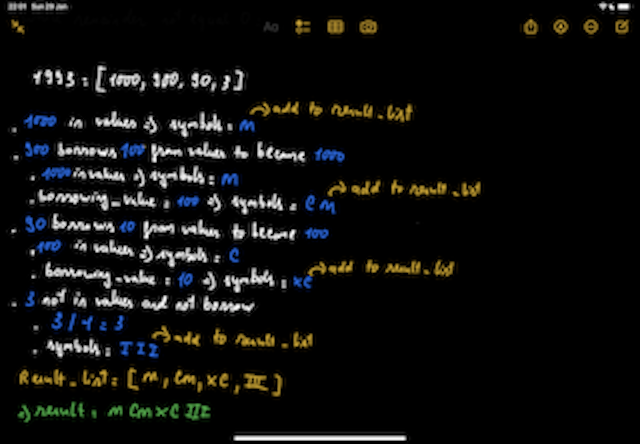 22:01 Sun 29 Jan
Aa
1993 = [1000, 900, 90, 3]
. 1000 in values => symbols = M -> add to result_list
. 900 borrows 100 from values to become 1000
. 1000 in values => symbols = M
. borrowing_value = 100 => symbols = CM -> add to result_list
. 90 borrows 10 from values to become 100
. 100 in values => symbols = C
. borrowing_value = 10 => symbols = XC -> add to result_list
. 3 not in values and not borrow
. 3 / 1 = 3
. symbols = III -> add to result_list
Result_list = [M, CM, XC, III]
=> result = MCMXCIII